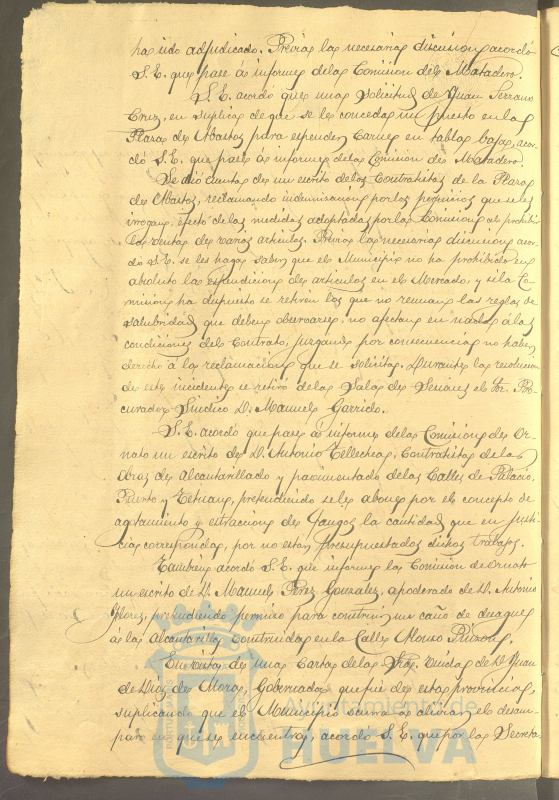 ha sido adjudicado. Previas las necesarias discusiones acordó
S. E. que pase á informe de la Comision del Matadero.
S. E. acordó que una solicitud de Juan Serrano
Cruz, en suplica de que se le conceda un puesto en la
Plaza de Abastos para espender Carnes en tabla baja, acor-
dó S. E. que pase á informe de la Comision de Matadero.
Se dió cuenta de un escrito de los Contratistas de la Plaza
de Abastos, reclamando indemnizacion por los perjuicios que se les
irrogan, efecto de las medidas adoptadas por la Comision al prohibir
la venta de varios articulos. Previa la necesaria discusion acor-
dó S. E. se les haga saber que el Municipio no ha prohibido en
absoluto la espendicion de articulos en el Mercado, y si la Co-
mision ha dispuesto se retiren los que no reunan las reglas de
salubridad que deben observarse, no afectan en nada á las
condiciones del Contrato, juzgando por consecuencia no haber
derecho á la reclamacion que se solicita. Durante la resolucion
de este incidente se retiró de la Sala de Sesiones el Sr. Pro-
curador Sindico D. Manuel Garrido.
S. E. acordó que pase á informe de la Comision de Or-
nato un escrito de D. Antonio Tellechea, Contratista de las
obras de alcantarillado y pavimentado de las Calles de Palacio,
Puerto y Tetuan, pretendiendo se le abone por el concepto de
agotamiento y estraccion de fangos la cantidad que en justi-
cia corresponda, por no estar presupuestados dichos trabajos.
Tambien acordó S. E. que informe la Comision de Ornato
un escrito de D. Manuel Perez Gonzalez, apoderado de D. Antonio
Flores, pretendiendo permiso para construir un caño de desague
á la Alcantarilla construida en la Calle Alonso Pinzon.
En vista de una Carta de la Sra. Viuda de D. Juan
de Dios de Mora, Gobernador que fué de esta provincia,
suplicando que el Municipio acurra á aliviar el desam-
paro en que se encuentra, acordó S. E. que por la Secreta-
Ayuntamiento de
HUELVA